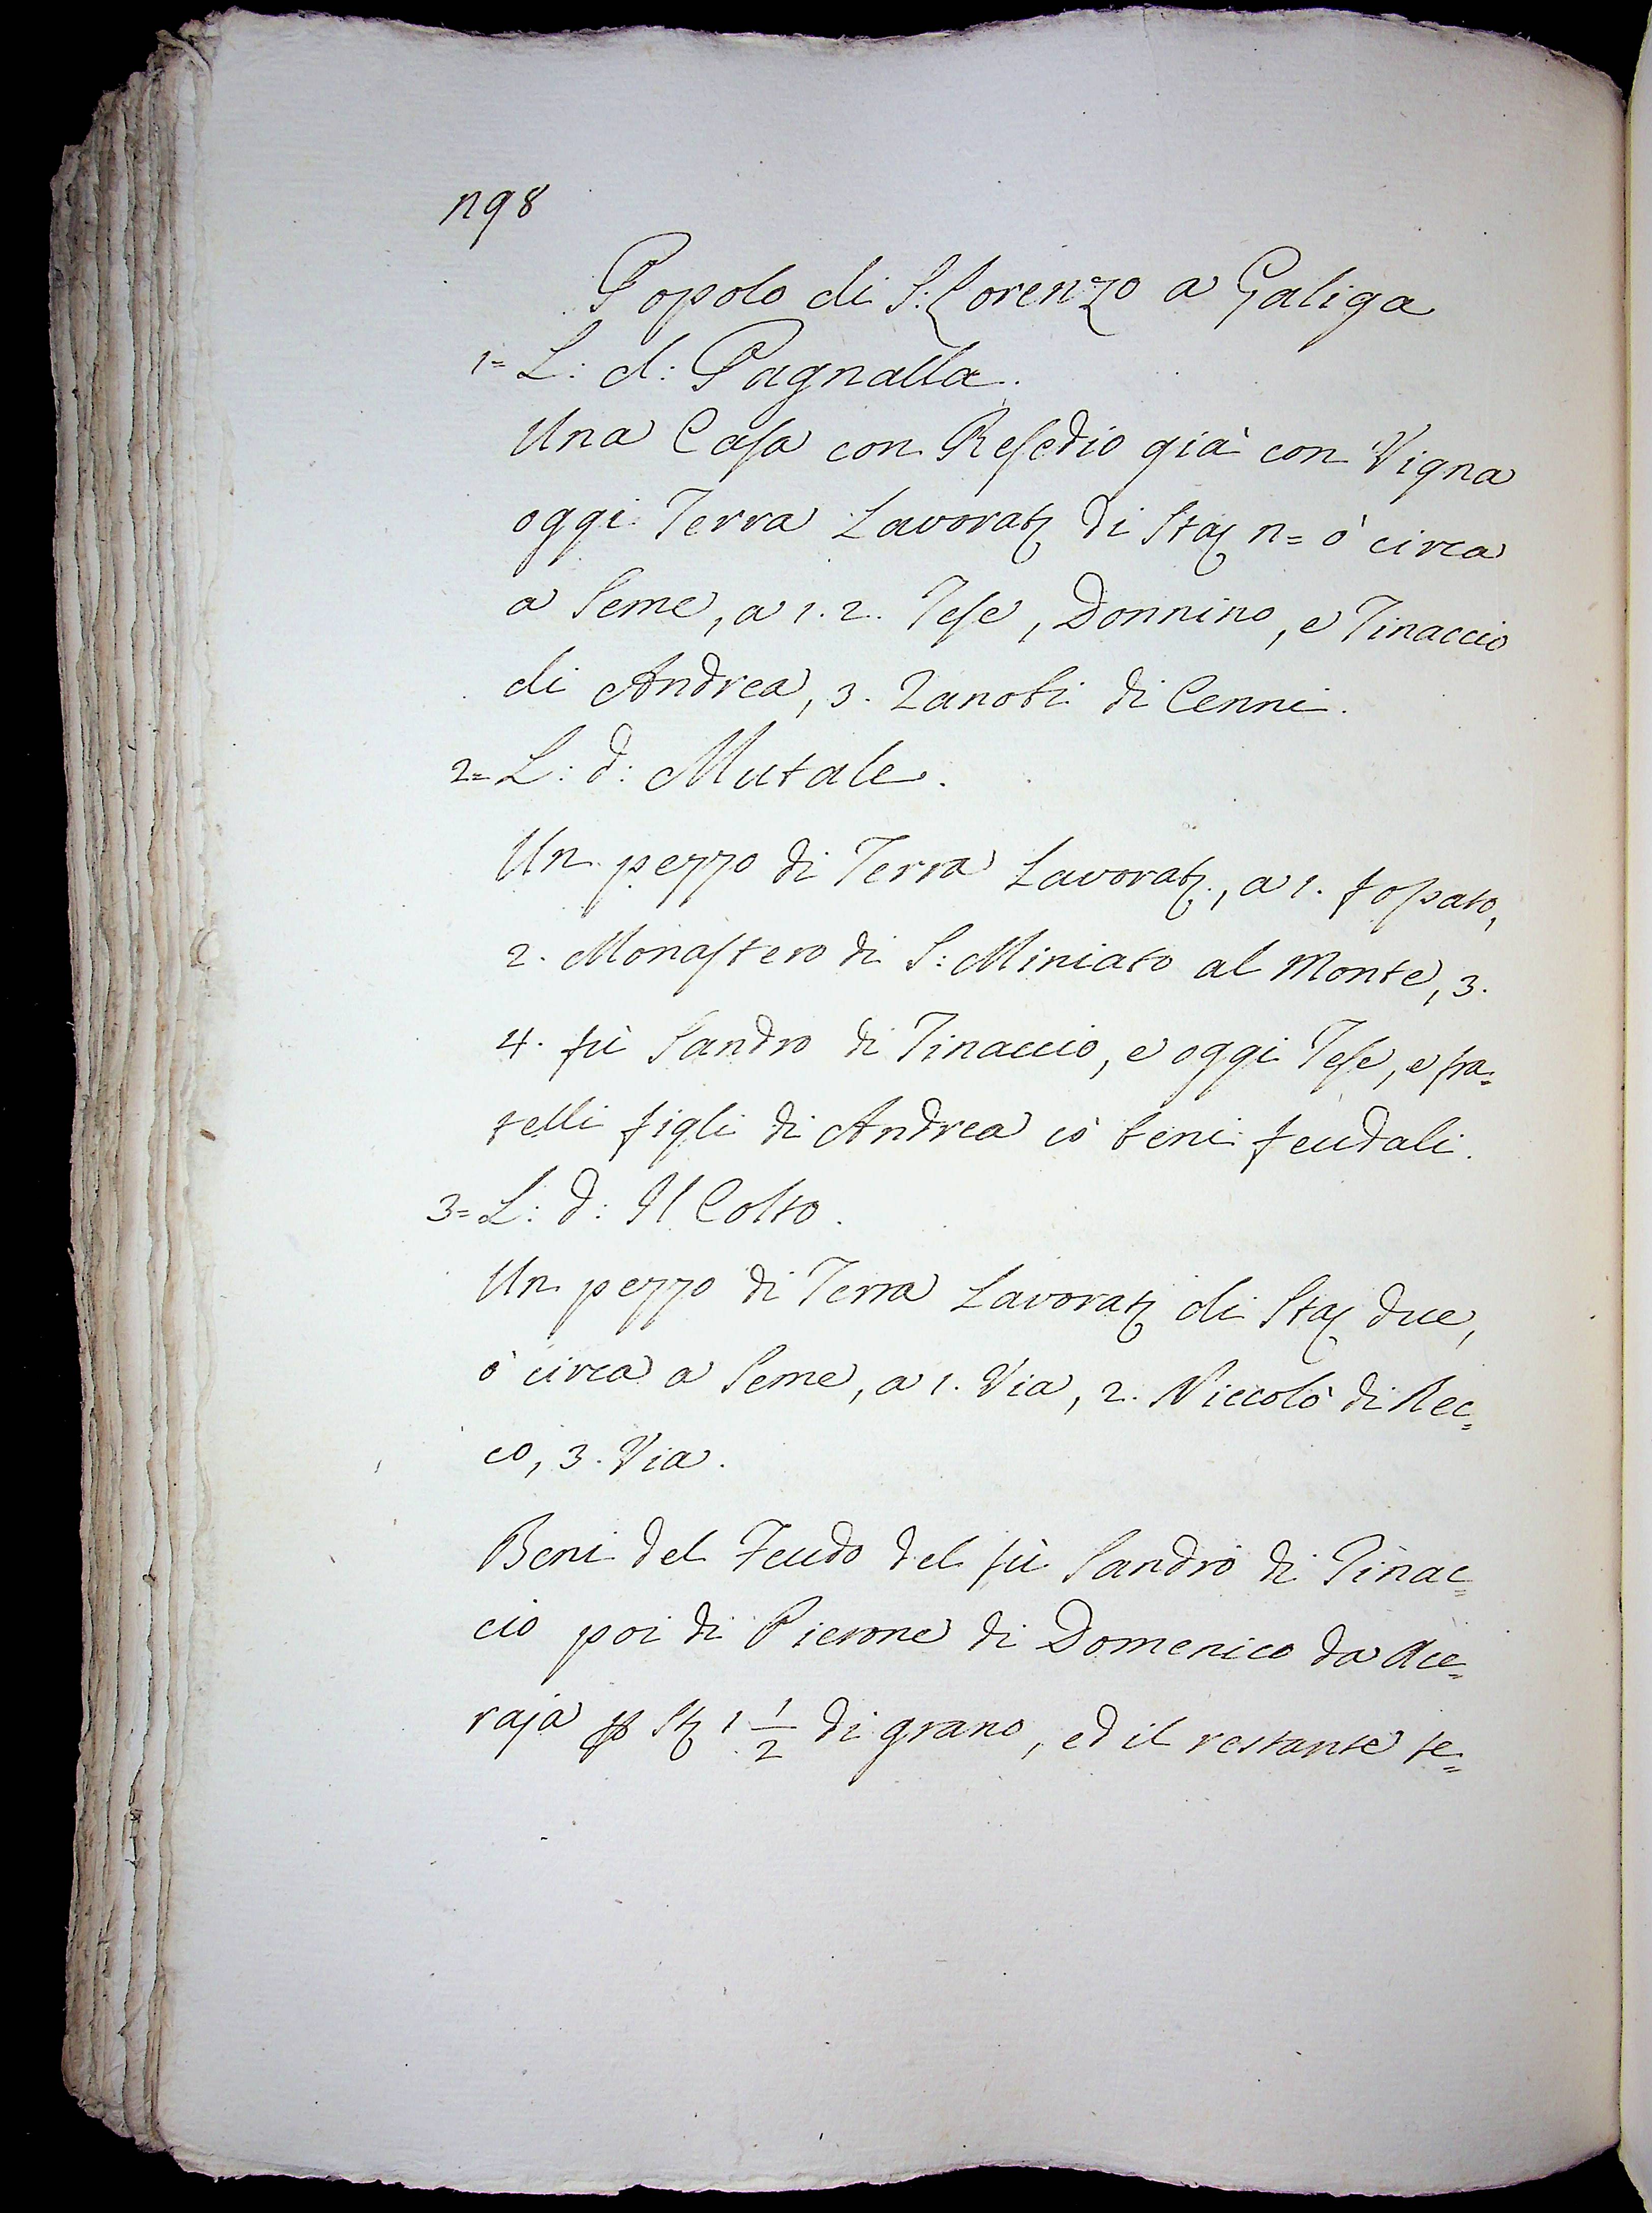 198
Popolo di S: Lorenzo a Galiga
1= L: d: Pagnalla.
Una Casa con Resedio già con Vigna
oggi Terra Lavorat di Sta n= ò circa
a Seme, a 1. 2. Tese, Donnino, e Tinaccio
di Andrea, 3. Zanobi di Cenni.
2= L: d: Mutale.
Un pezzo di Terra Lavorat, a 1. fossato,
2. Monastero di S: Miniato al Monte, 3.
4. fù Sandro di Tinaccio, e oggi Tese, e fra=
telli figli di Andrea cò beni feudali.
3= L: d: Il Colto.
Un pezzo di Terra Lavorat di Sta due,
ò circa a Seme, a 1. Via, 2. Niccolò di Rec=
co, 3. Via.
Beni del Feudo del fù Sandro di Tinac=
cio poi di Pierone di Domenico da Ace=
raja St 1 1/2 di grano, ed il restante te=